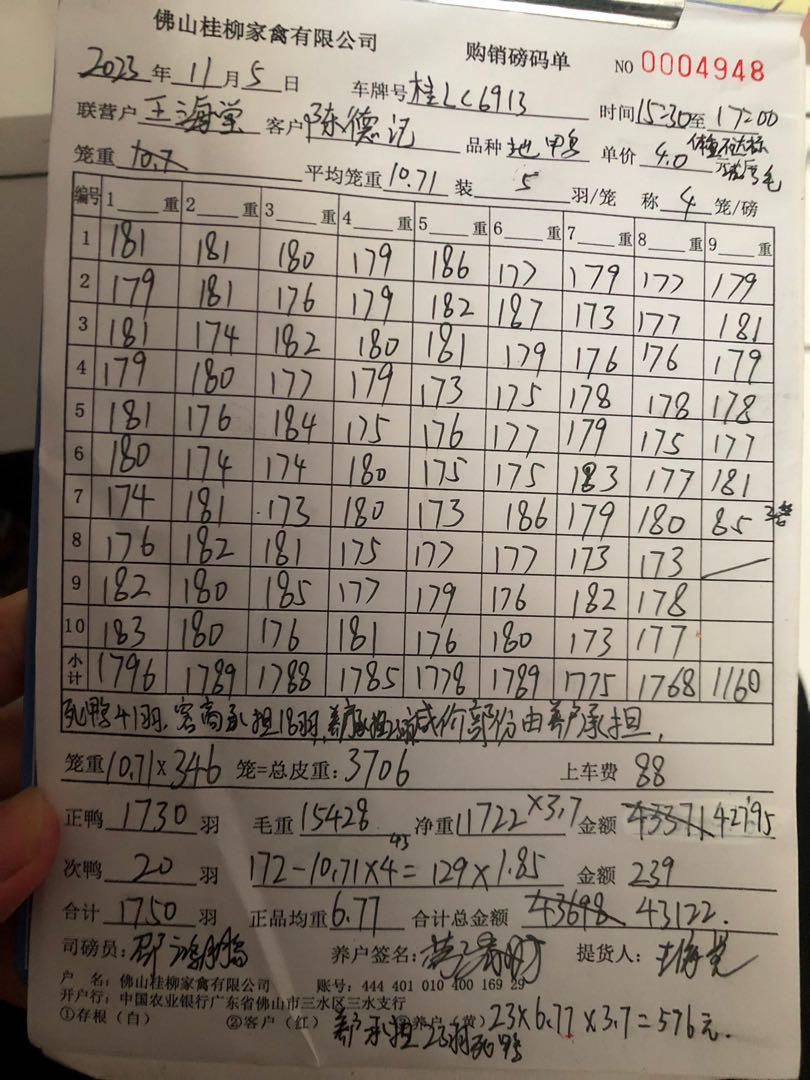 佛山桂柳家禽有限公司 购销磅码单 NO 0004948
2023年11月5日 车牌号 桂LC6913 时间15:30至17:00
联营户 王海堂 客户 陈德记 品种 地鸭 单价 4.0
笼重 10.7 平均笼重 10.71 装 5 羽/笼 称 4 笼/磅
编号 1 重 2 重 3 重 4 重 5 重 6 重 7 重 8 重 9 重
1 181 181 180 179 186 177 179 177 179
2 179 181 176 179 182 187 173 177 181
3 181 174 182 180 181 179 176 176 179
4 179 180 177 179 173 175 178 178 178
5 181 176 184 175 176 177 179 175 177
6 180 174 174 180 175 175 183 177 181
7 174 181 173 180 173 186 179 180 85
8 176 182 181 175 177 177 173 173
9 182 180 185 177 179 176 182 178
10 183 180 176 181 176 180 173 177
小计 1796 1789 1788 1785 1778 1789 1775 1768 1160
死鸭41羽,客商承担18羽,养户承担23羽减价部份由养户承担,
笼重10.71×346 笼=总皮重:3706 上车费 88
正鸭 1730 羽 毛重 15428 净重 11722×3.7 金额 43371 42795
43
次鸭 20 羽 172-10.71×4=129×1.85 金额 239
合计 1750 羽 正品均重 6.77 合计总金额 43698 43122.
司磅员: 养户签名: 提货人:
户 名:佛山桂柳家禽有限公司 账号:444 401 010 400 169 29
开户行:中国农业银行广东省佛山市三水区三水支行
①存根(白) ②客户(红) ③养户(黄) 23×6.77×3.7=576元.
养户承担23羽死鸭